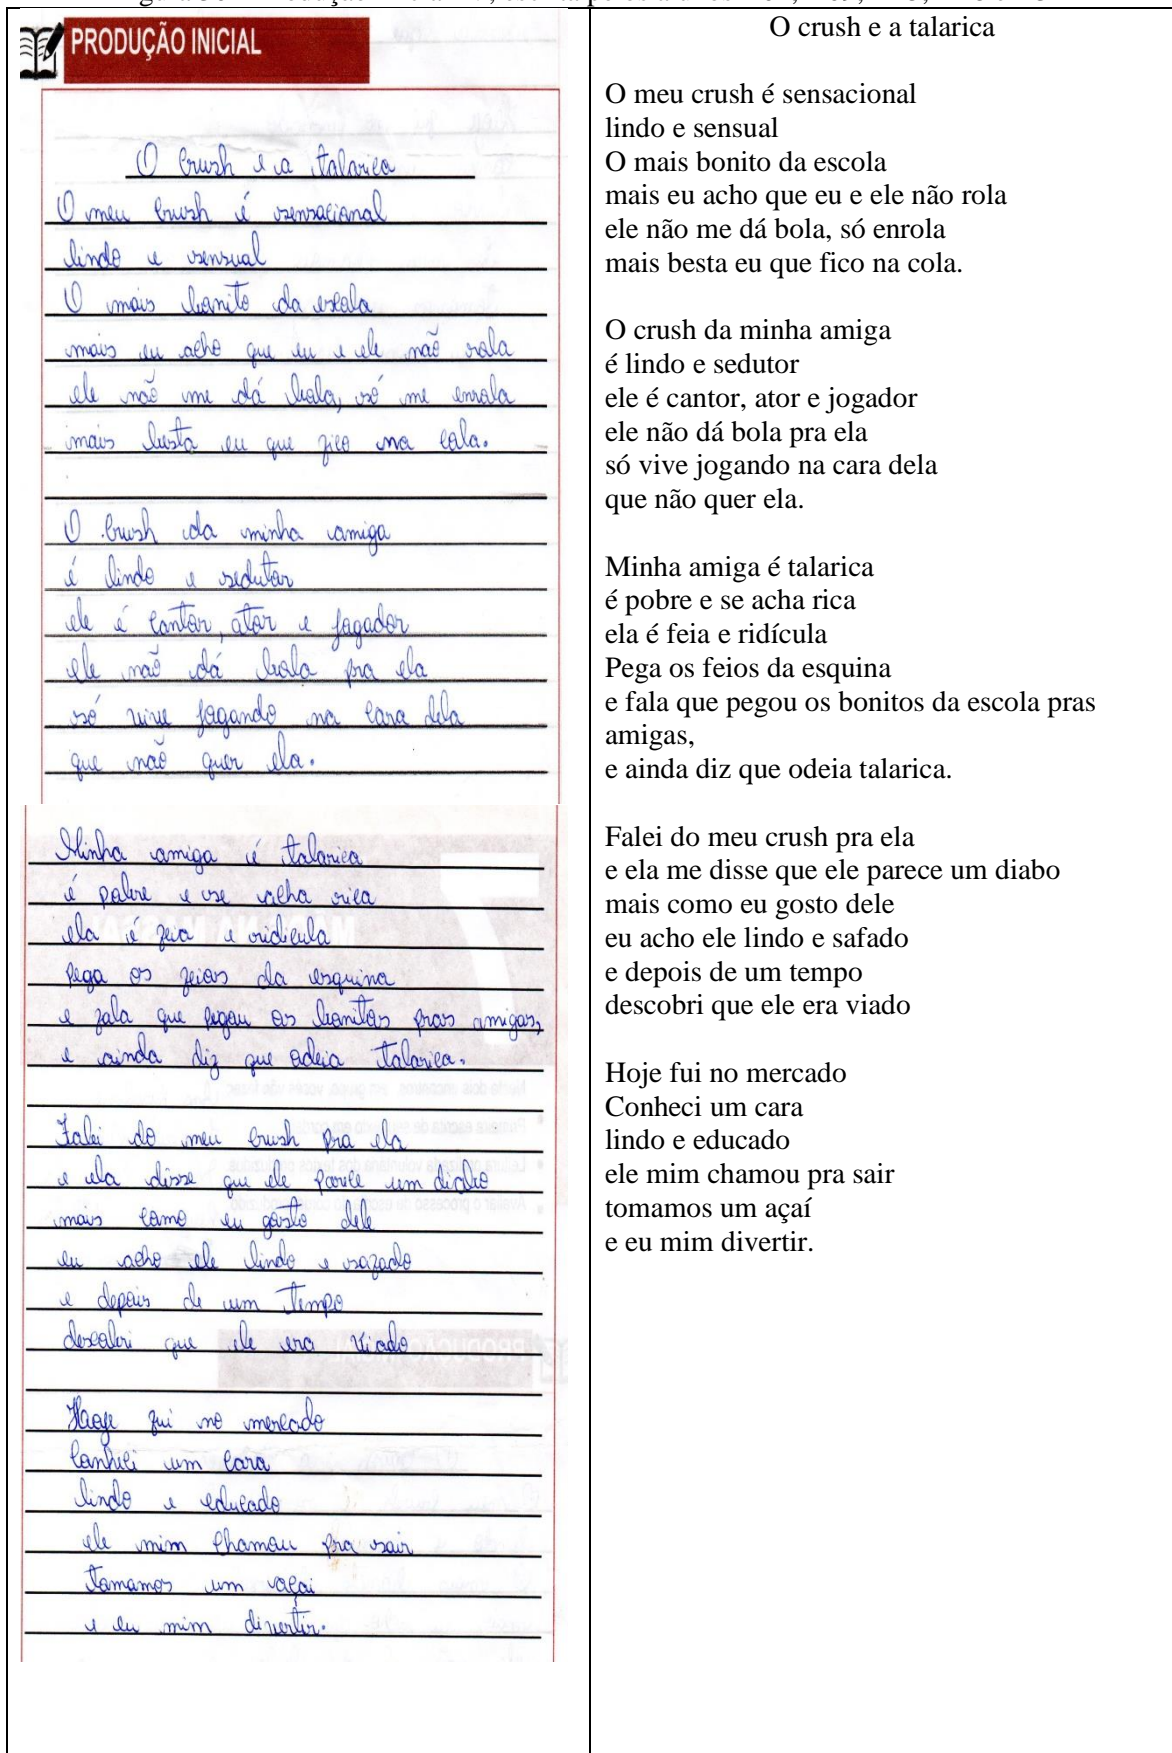 PRODUÇÃO INICIAL
O crush e a talarica
O meu crush é sensacional
lindo e sensual
O mais bonito da escola
mais eu acho que eu e ele não rola
ele não me dá bola, só me enrola
mais besta eu que fico na cola.
O crush da minha amiga
é lindo e sedutor
ele é cantor, ator e jogador
ele não dá bola pra ela
só vive jogando na cara dela
que não quer ela.
Minha amiga é talarica
é pobre e se acha rica
ela é feia e ridicula
Pega os feios da esquina
e fala que pegou os bonitos pras amigas,
e ainda diz que odeia talarica.
Falei do meu crush pra ela
e ela disse que ele parece um diabo
mais como eu gosto dele
eu acho ele lindo e safado
e depois de um tempo
descobri que ele era viado
Hoje fui no mercado
Conheci um cara
lindo e educado
ele mim chamou pra sair
tomamos um açai
e eu mim divertir.
O crush e a talarica
O meu crush é sensacional
lindo e sensual
O mais bonito da escola
mais eu acho que eu e ele não rola
ele não me dá bola, só enrola
mais besta eu que fico na cola.
O crush da minha amiga
é lindo e sedutor
ele é cantor, ator e jogador
ele não dá bola pra ela
só vive jogando na cara dela
que não quer ela.
Minha amiga é talarica
é pobre e se acha rica
ela é feia e ridícula
Pega os feios da esquina
e fala que pegou os bonitos da escola pras
amigas,
e ainda diz que odeia talarica.
Falei do meu crush pra ela
e ela me disse que ele parece um diabo
mais como eu gosto dele
eu acho ele lindo e safado
e depois de um tempo
descobri que ele era viado
Hoje fui no mercado
Conheci um cara
lindo e educado
ele mim chamou pra sair
tomamos um açaí
e eu mim divertir.